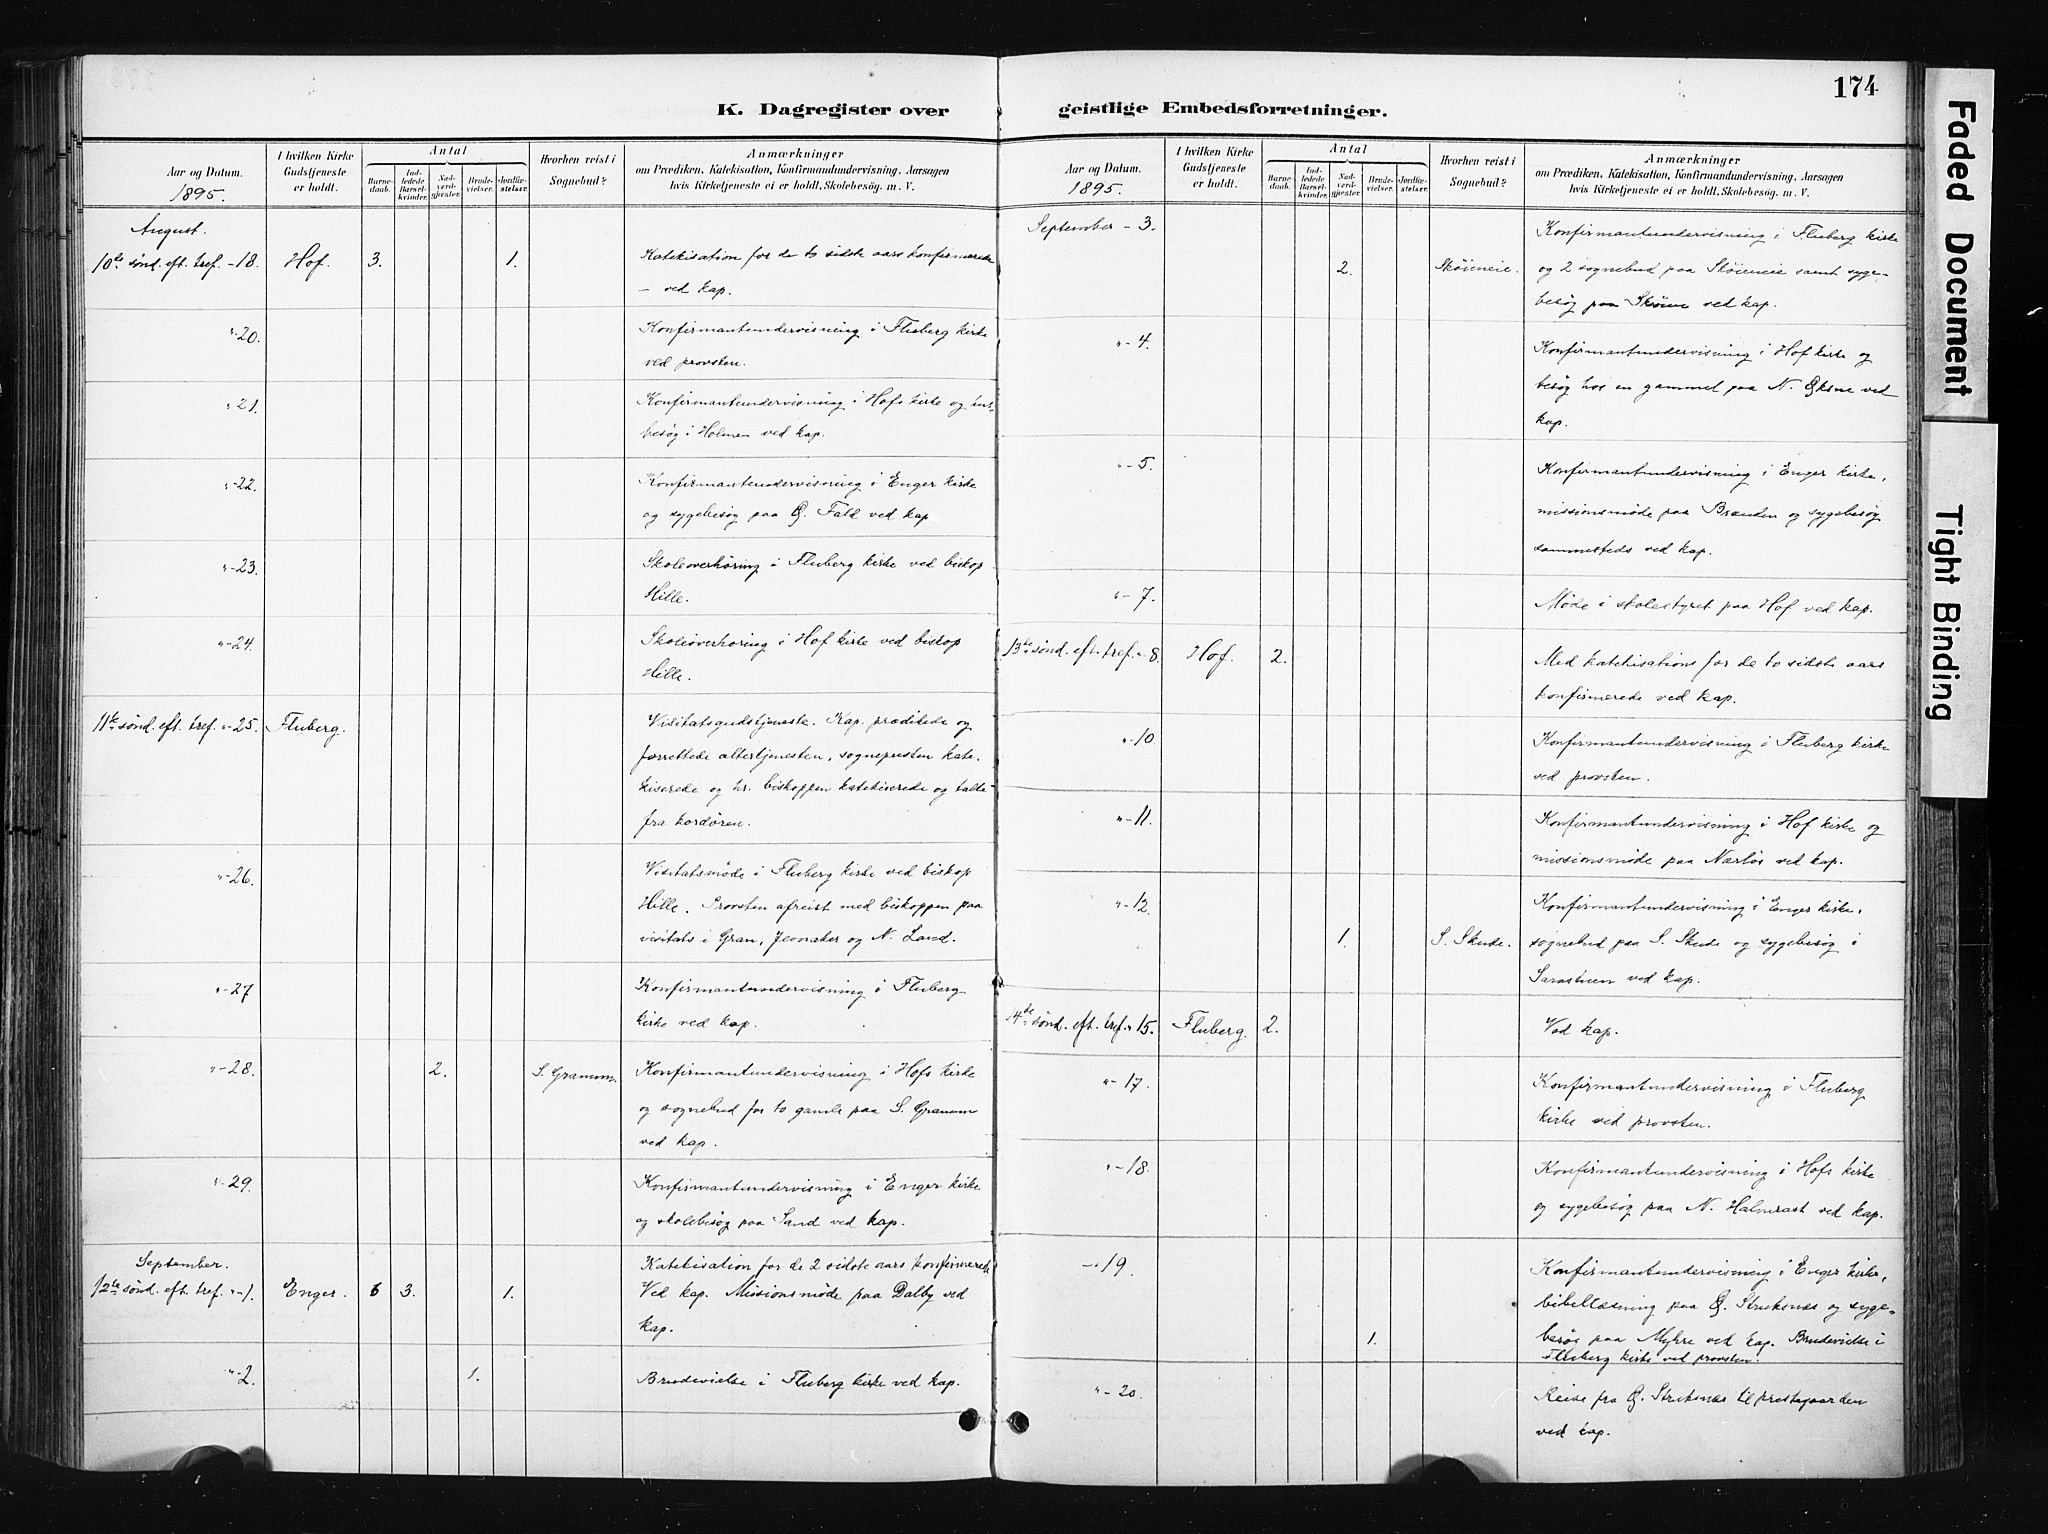 174
K. Dagregister over geistlige Embedsforretninger.
Aar og Datum.
1895.
I hvilken Kirke
Gudstjeneste
er holdt.
Antal
Barne-
daab.
Ind-
ledede
Barsel-
kvinder.
Nad-
verd-
gjester.
Brude-
vielser.
Jordfæ-
stelser.
Hvorhen reist i
Sognebud?
Anmærkninger
om Prædiken, Katekisation, Konfirmandundervisning, Aarsagen
hvis Kirketjeneste ei er holdt, Skolebesøg. m. V.
August.
10de sønd. eft. tref. - 18. Hof. 3. 1. Katekisation for de to sidste aars konfirmerede
- ved kap.
"-20. Konfirmantundervisning i Fluberg kirke
ved provsten.
"21. Konfirmantundervisning i Hofs kirke og
besøg i Holmen ved kap.
"-22. Konfirmantundervisning i Enger kirke
og sygebesøg paa Ø. Fald ved kap
"-23. Skoleoverhøring i Fluberg kirke ved biskop
Hille.
"-24. Skoleoverhøring i Hof kirke ved biskop
Hille.
11te sønd. eft. tref. "-25. Fluberg. Visitatsgudstjeneste. Kap. prædikede og
forrettede altertjenesten, sognepresten kate-
kiserede og hr. biskoppen katekiserede og talte
fra kordøren.
"-26. Visitatsmøde i Fluberg kirke ved biskop
Hille. Provsten afreist med biskoppen paa
visitats i Gran, Jevnaker og N. Land.
"-27 Konfirmantundervisning i Fluberg
kirke ved kap.
"-28. 2. S. Granum. Konfirmantundervisning i Hofs kirke
og sognebud for to gamle paa S. Granum
ved kap.
"-29. Konfirmantundervisning i Enger kirke
og skolebesøg paa Sand ved kap.
September.
12te sønd. eft. tref. "-1. Enger. 6 3. 1. Katekisation for de 2 sidste aars konfirmerede
Ved kap. Missionsmøde paa Dalby ved
kap.
"-2. 1. Brudevielse i Fluberg kirke ved kap.
Aar og Datum.
1895.
I hvilken Kirke
Gudstjeneste
er holdt.
Antal
Barne-
daab.
Ind-
ledede
Barsel-
kvinder.
Nad-
verd-
gjester.
Brude-
vielser.
Jordfæ-
stelser.
Hvorhen reist i
Sognebud?
Anmærkninger
om Prædiken, Katekisation, Konfirmandundervisning, Aarsagen
hvis Kirketjeneste ei er holdt, Skolebesøg. m. V.
September - 3. Konfirmantundervisning i Fluberg kirke
2. Skøieneie. og 2 sognebud paa Skøieneie samt syge-
besøg paa Skøien ved kap.
"-4. Konfirmantundervisning i Hof kirke og
besøg hos en gammel paa N. Øksne ved
kap.
"-5. Konfirmantundervisning i Enger kirke,
missionsmøde paa Brænden og sygebesøg
sammesteds ved kap.
"-7. Møde i skolestyret paa Hof ved kap.
13te sønd. eft. tref. "-8. Hof. 2. Med katekisation for de to sidste aars
konfirmerede ved kap.
"-10. Konfirmantundervisning i Fluberg kirke
ved provsten.
"-11. Konfirmantundervisning i Hof kirke og
missionsmøde paa Nærløs ved kap.
"-12. Konfirmantundervisning i Enger kirke,
1. S. Skude. sognebud paa S. Skude og sygebesøg i
Sarastuen ved kap.
14de sønd. eft. tref. "15. Fluberg. 2. Ved kap.
"-17. Konfirmantundervisning i Fluberg
kirke ved provsten.
"-18. Konfirmantundervisning i Hofs kirke
og sygebesøg paa N. Halmrast ved kap.
-"19. Konfirmantundervisning i Enger kirke,
bibellæsning paa Ø. Struksnæs og syge-
1. besøg paa Myhre ved kap. Brudevielse i
Fluberg kirke ved provsten.
"-20. Reise fra Ø. Struksnæs til prestegaarden
ved kap.
Faded Document
Tight Binding